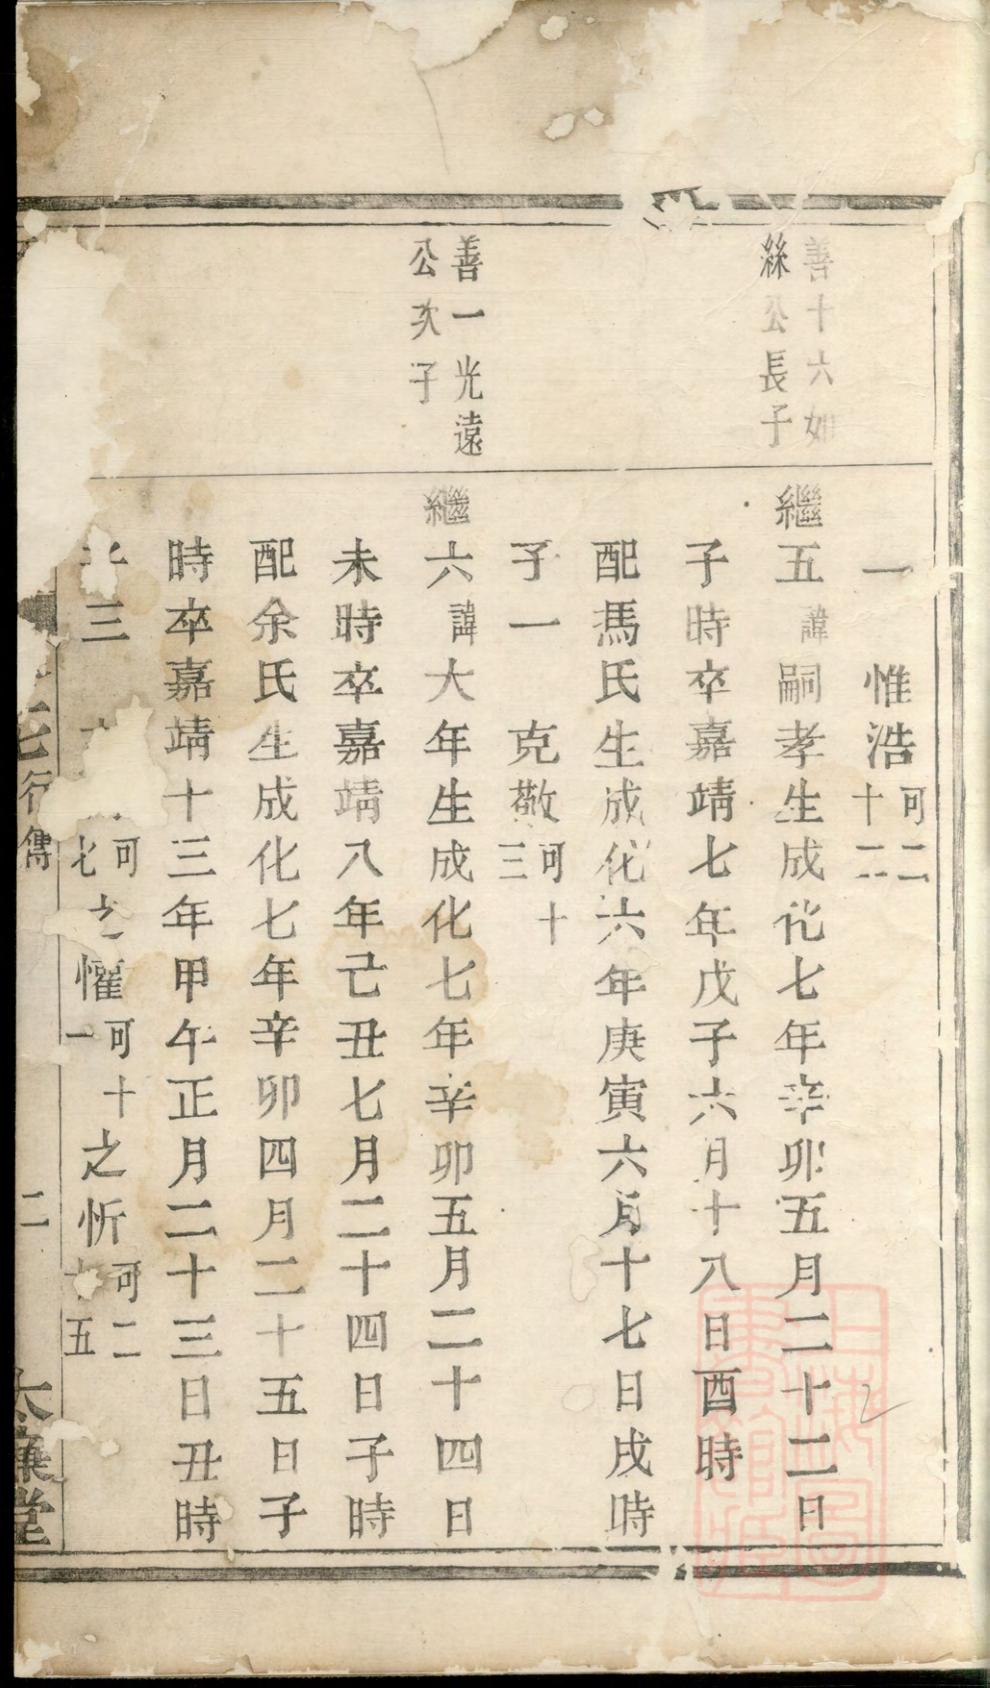 一　惟浩可二十二
善十六如
絲公長子
繼五諱嗣孝生成化七年辛卯五月二十二日
子時卒嘉靖七年戊子六月十八日酉時
配馬氏生成化六年庚寅六月十七日戌時
子一　克敬可十三
善一光遠
公次子
繼六諱大年生成化七年辛卯五月二十四日
未時卒嘉靖八年己丑七月二十四日子時
配余氏生成化七年辛卯四月二十五日子
時卒嘉靖十三年甲午正月二十三日丑時
三　可七　之懼可十一　之忻可二十五
行傳　二